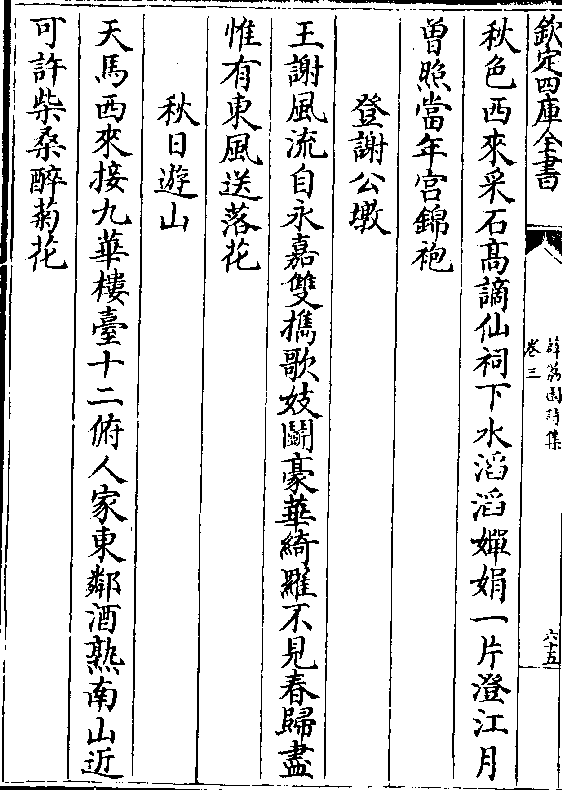 欽定四庫全書
薜荔園詩集
卷三
六十五
秋色西來采石髙謫仙祠下水滔滔嬋娟一片澄江月
曽照當年宫錦袍
登謝公墩
王謝風流自永嘉雙携歌妓鬭豪華綺羅不見春歸盡
惟有東風送落花
秋日遊山
天馬西來接九華樓臺十二俯人家東鄰酒熟南山近
可許柴桑醉菊花